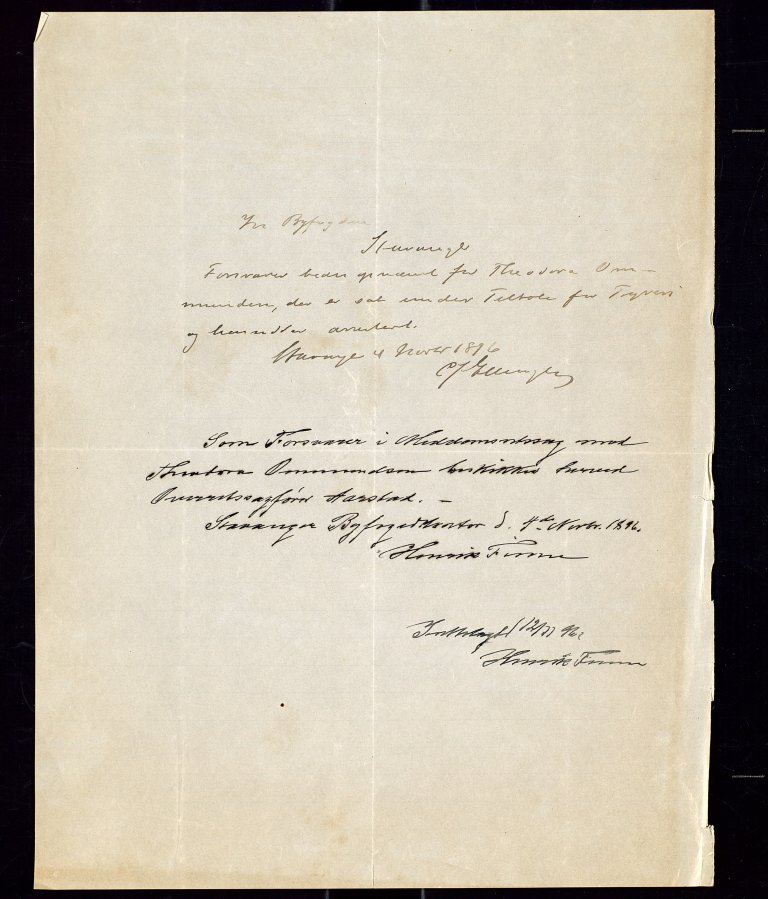 Hr Byfogden
Stavanger
Forsvarer bedes opnævnt for Theodora Om-
mundsen, der er sat under Tiltale for Tyveri
og hensidder arrestert.
Stavanger 4 Novbr 1896
Som Forsvarer i Meddomsretssag mod
Theodora Ommundsen beskikkes herved
Overretssagfører Aarstad. –
Stavanger Byfogedkontor d. 4de Novbr. 1896.
Henrik Finne
12/11 96.
Henrik Finne